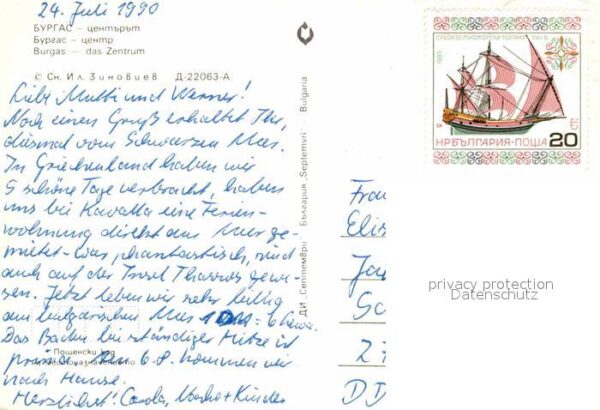 24. Juli 1990
БУРГАС – центърът
Бургас – центр
Burgas – das Zentrum
© Сн. Ил. Зиновиев Д-22063-А
Liebe Mutti und Werner!
Noch einen Gruß erhaltet Ihr,
diesmal vom Schwarzen Meer.
In Griechenland haben wir
5 schöne Tage verbracht, haben
uns bei Kavalla eine Ferien-
wohnung direkt am Meer ge-
mietet – war phantastisch, sind
auch auf der Insel Thassos gewe-
sen. Jetzt leben wir sehr billig
am bulgarischen Meer 1 DM = 6 Lewa.
Das Baden bei ständiger Hitze ist
prima. Am 6.8. kommen wir
nach Hause.
Herzlichst! Carola, + Kinder
Пощенски код
местоназначението
ДИ „Септември“ България „Septemvri“ Bulgaria
СРЕДИЗЕМНОМОРСКИ XVIII В.
1985
НР БЪЛГАРИЯ · ПОЩА 20 СТ.
Frau
Elis
Ja
Sc
D D
privacy protection
Datenschutz